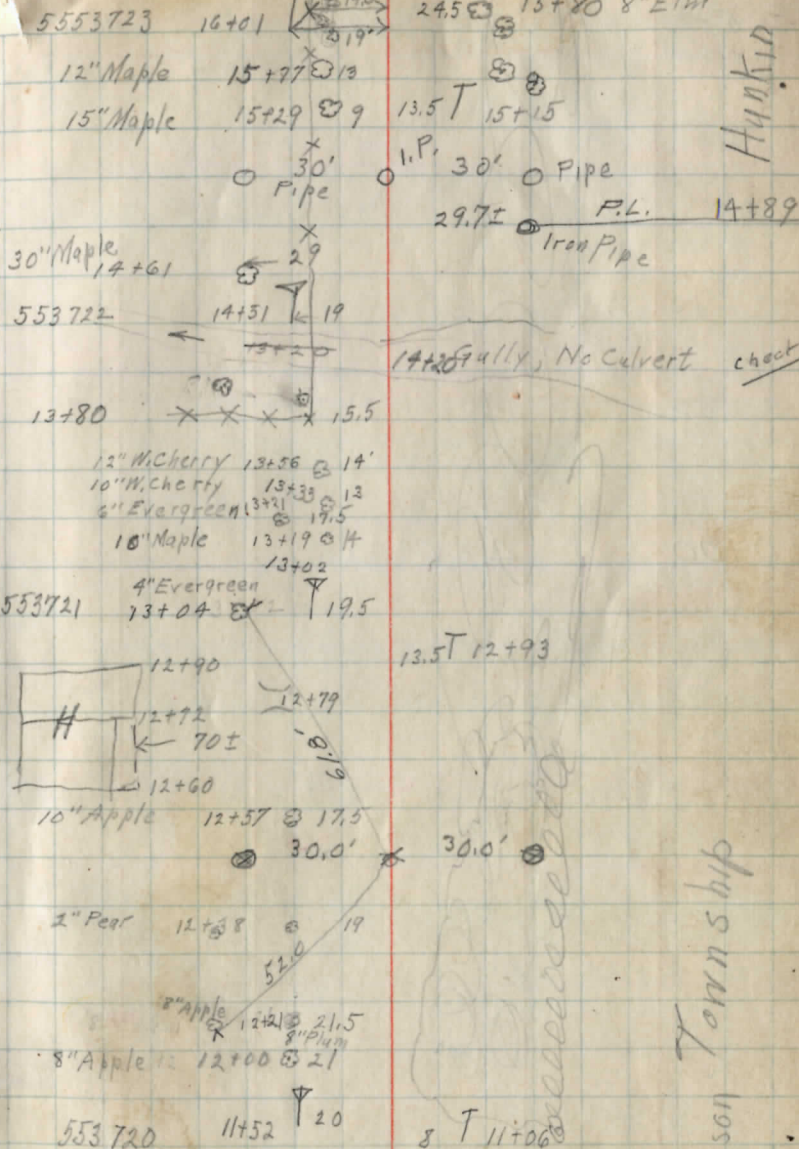 24.5 15+80 8" Elm
5553723 16+01
19'
12" Maple 15+77 13
15" Maple 15+29 9 13.5 T 15+15
Hunkin
30' I.P. 30' Pipe
Pipe
29.7± P.L. 14+89
Iron Pipe
30" Maple 14+61 29
553722 14+51 19
13+20
14+20 Gully, No Culvert check
13+80 15.5
12" W.Cherry 13+56 14'
10" W.Cherry 13+33 13
6" Evergreen 13+21 17.5
10" Maple 13+19 14
13+02
4" Evergreen
553721 13+04 19.5
13.5 T 12+93
12+90
12+79
H 12+72
70±
61.8'
12+60
10" Apple 12+57 17.5
30.0' 30.0'
2" Pear 12+38 19
52.0
8" Apple 12+21 21.5
8" Plum
8" Apple 12+00 21
son Township
553720 11+52 20 8 T 11+06